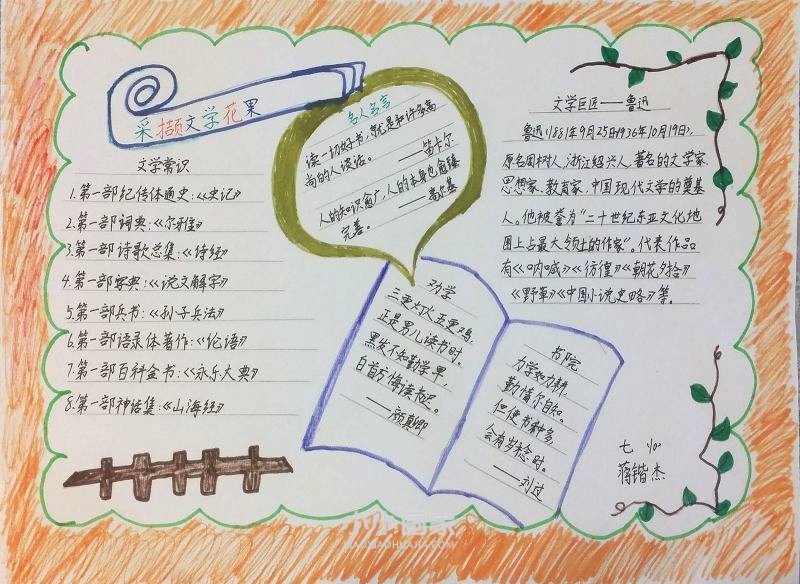 采撷文学花果
文学常识
1.第一部纪传体通史:《史记》
2.第一部词典:《尔雅》
3.第一部诗歌总集:《诗经》
4.第一部字典:《说文解字》
5.第一部兵书:《孙子兵法》
6.第一部语录体著作:《伦语》
7.第一部百科全书:《永乐大典》
8.第一部神话集:《山海经》
名人名言
读一切好书,就是和许多高
尚的人谈话。
——笛卡尔
人的知识愈广,人的本身也愈臻
完善。——高尔基
劝学
三更灯火五更鸡,
正是男儿读书时。
黑发不知勤学早,
白首方悔读书迟。
——颜真卿
书院
力学如力耕,
勤惰尔自知。
但使书种多,
会有岁稔时。
——刘过
文学巨匠——鲁迅
鲁迅1881年9月25日1936年10月19日,
原名周树人,浙江绍兴人,著名的文学家、
思想家、教育家、中国现代文学的奠基
人。他被誉为"二十世纪东亚文化地
图上占最大领土的作家"。代表作品
有《呐喊》《彷徨》《朝花夕拾》
《野草》《中国小说史略》等。
蒋锴杰
小小画家
XIAOXIAOHUAJIA.COM